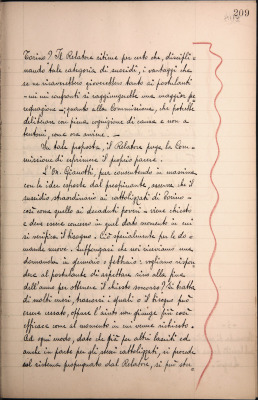 209
Torino? Il Relatore ritiene per certo che, discipli-
nando tale categoria di sussidi, i vantaggi che
se ne ricaverebbero gioverebbero tanto ai postulanti
- nei cui confronti si raggiungerebbe una maggior pe
requazione -; quanto alla Commissione, che potrebbe
deliberare con piena cognizione di causa e non a
tentoni, come ora avviene. —
Su tale proposta, il Relatore prega la Com-
missione di esprimere il proprio parere.
L'On. Gianotti, pur consentendo in massima
con le idee esposte dal preopinante, osserva che il
sussidio straordinario ai cattolizzati di Torino -
così come quello ai decaduti poveri - viene chiesto
e deve essere concesso in quel dato momento in cui
si verifica il bisogno. Ciò specialmente per le do-
mande nuove. SupponGasi che noi riceviamo una
domanda in gennaio o febbraio: vogliamo rispon
dere al postulante di aspettare sino alla fine
dell'anno per ottenere il chiesto soccorso? Si tratta
di molti mesi, trascorsi i quali o il bisogno può
essere cessato, oppure l'aiuto non giunge più così
efficace come al momento in cui venne richiesto.
Ad ogni modo, dato che più per altri sussidi ed
anche in parte per gli stessi cattolizzati, si procede
col sistema propugnato dal Relatore, si può stu-